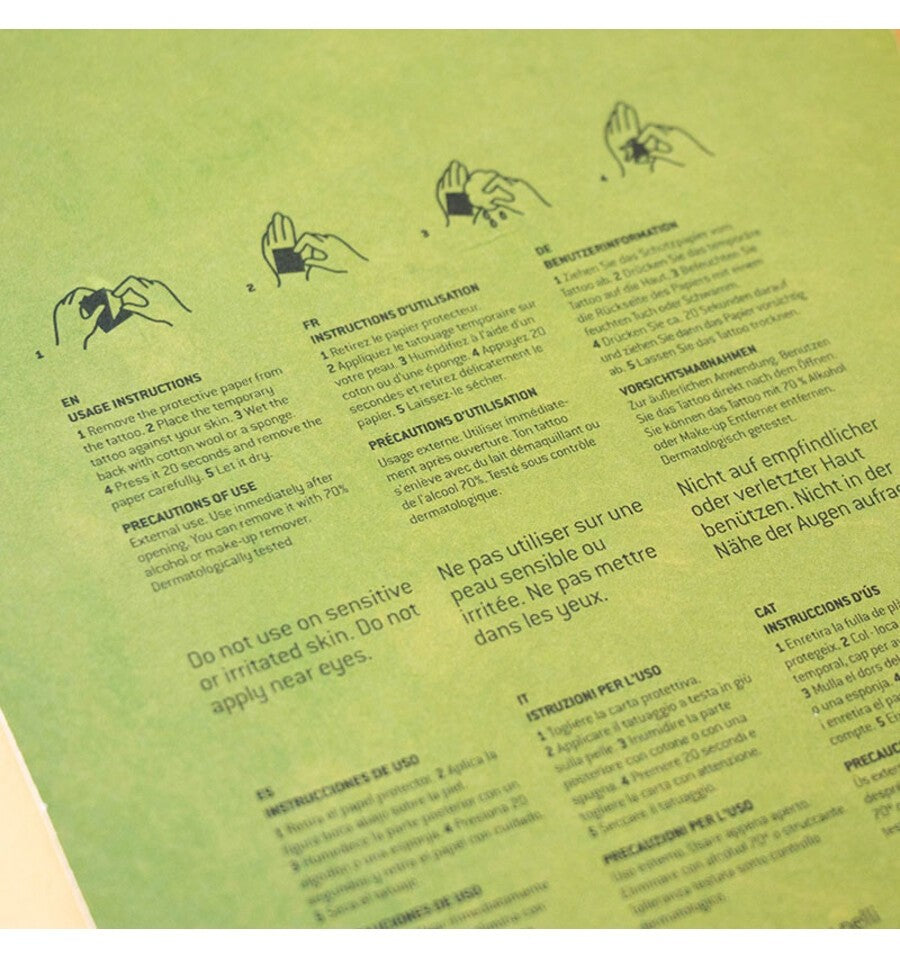 1
2
3
4
EN
USAGE INSTRUCTIONS
1 Remove the protective paper from
the tattoo. 2 Place the temporary
tattoo against your skin. 3 Wet the
back with cotton wool or a sponge.
4 Press it 20 seconds and remove the
paper carefully. 5 Let it dry.
PRECAUTIONS OF USE
External use. Use inmediately after
opening. You can remove it with 70%
alcohol or make-up remover.
Dermatologically tested
Do not use on sensitive
or irritated skin. Do not
apply near eyes.
FR
INSTRUCTIONS D'UTILISATION
1 Retirez le papier protecteur.
2 Appliquez le tatouage temporaire sur
votre peau. 3 Humidifiez à l'aide d'un
coton ou d'une éponge. 4 Appuyez 20
secondes et retirez délicatement le
papier. 5 Laissez-le sécher.
PRÉCAUTIONS D'UTILISATION
Usage externe. Utiliser immédiate-
ment après ouverture. Ton tattoo
s'enlève avec du lait démaquillant ou
de l'alcool 70%. Testé sous contrôle
dermatologique.
Ne pas utiliser sur une
peau sensible ou
irritée. Ne pas mettre
dans les yeux.
DE
BENUTZERINFORMATION
1 Ziehen Sie das Schutzpapier vom
Tattoo ab. 2 Drücken Sie das temporäre
Tattoo auf die Haut. 3 Befeuchten Sie
die Rückseite des Papiers mit einem
feuchten Tuch oder Schwamm.
4 Drücken Sie ca. 20 Sekunden darauf
und ziehen Sie dann das Papier vorsichtig
ab. 5 Lassen Sie das Tattoo trocknen.
VORSICHTSMAßNAHMEN
Zur äußerlichen Anwendung. Benutzen
Sie das Tattoo direkt nach dem Öffnen.
Sie können das Tattoo mit 70 % Alkohol
oder Make-up Entferner entfernen.
Dermatologisch getestet.
Nicht auf empfindlicher
oder verletzter Haut
benützen. Nicht in der
Nähe der Augen
ES
INSTRUCCIONES DE USO
1 Retira el papel protector. 2 Aplica la
figura boca abajo sobre la piel.
3 Humedece la parte posterior con un
algodón o una esponja. 4 Presiona 20
segundos y retira el papel con cuidado.
5 Seca el tatuaje.
DE USO
IT
ISTRUZIONI PER L'USO
1 Togliere la carta protettiva.
2 Applicare il tatuaggio a testa in giù
sulla pelle. 3 Inumidire la parte
posteriore con cotone o con una
spugna. 4 Premere 20 secondi e
togliere la carta con attenzione.
5 Seccare il tatuaggio.
PRECAUZIONI PER L'USO
Uso esterno. Usare appena aperto.
Eliminare con alcohol 70° o struccante.
Tolleranza testata sotto controllo
dermatologico.
CAT
INSTRUCCIONS D'ÚS
1 Enretira la fulla de
protegeix. 2 Col·loca
temporal, cap per
3 Mulla el dors del
o una esponja. 4
i enretira el
compte. 5
Ús
70°